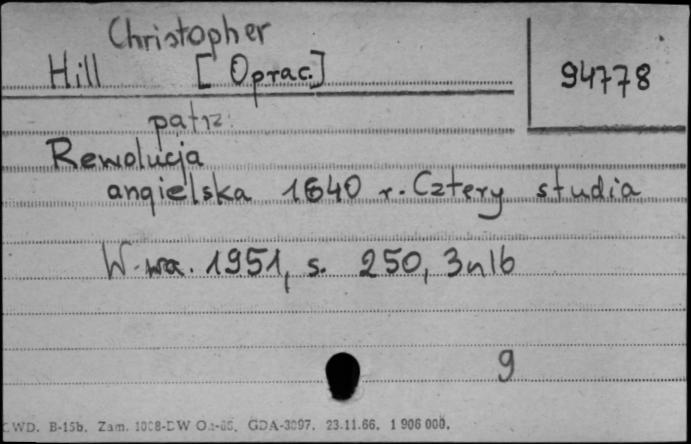 Christopher
Hill [Oprac.] 94778
patrz:
Rewolucja
angielska 1640 r. Cztery studia
W-wa. 1951, s. 250, 3nlb
9
CWD. B-15b. Zam. GDA-3097. 23.11.66. 1 906 000.